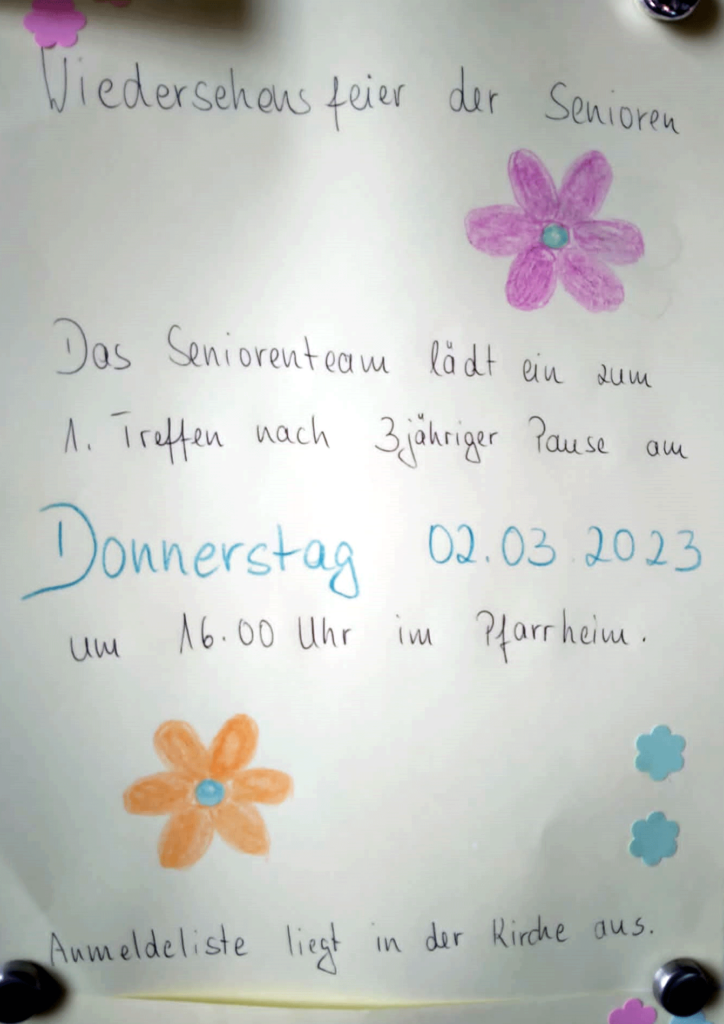 Wiedersehensfeier der Senioren
Das Seniorenteam lädt ein zum
1. Treffen nach 3jähriger Pause am
Donnerstag 02.03.2023
um 16.00 Uhr im Pfarrheim.
Anmeldeliste liegt in der Kirche aus.